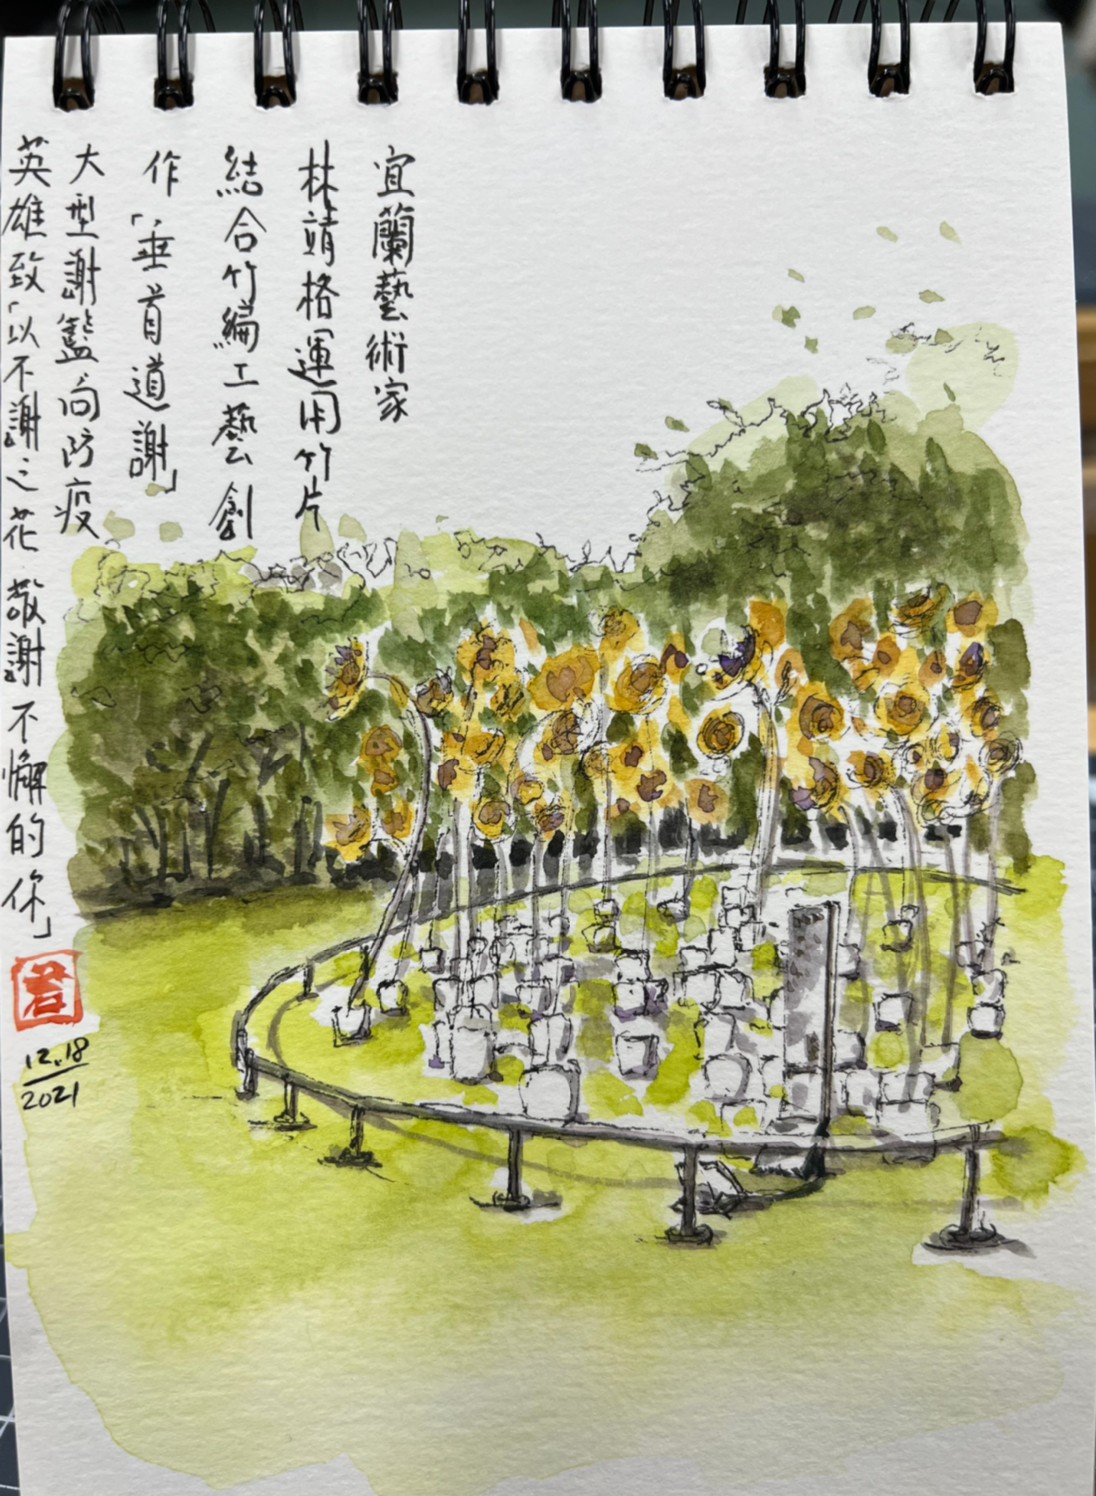 宜蘭藝術家
林靖格運用竹片
結合竹編工藝創
作「垂首道謝」
大型謝籃向防疫
英雄致「以不謝之花敬謝不懈的你」
12.18
2021